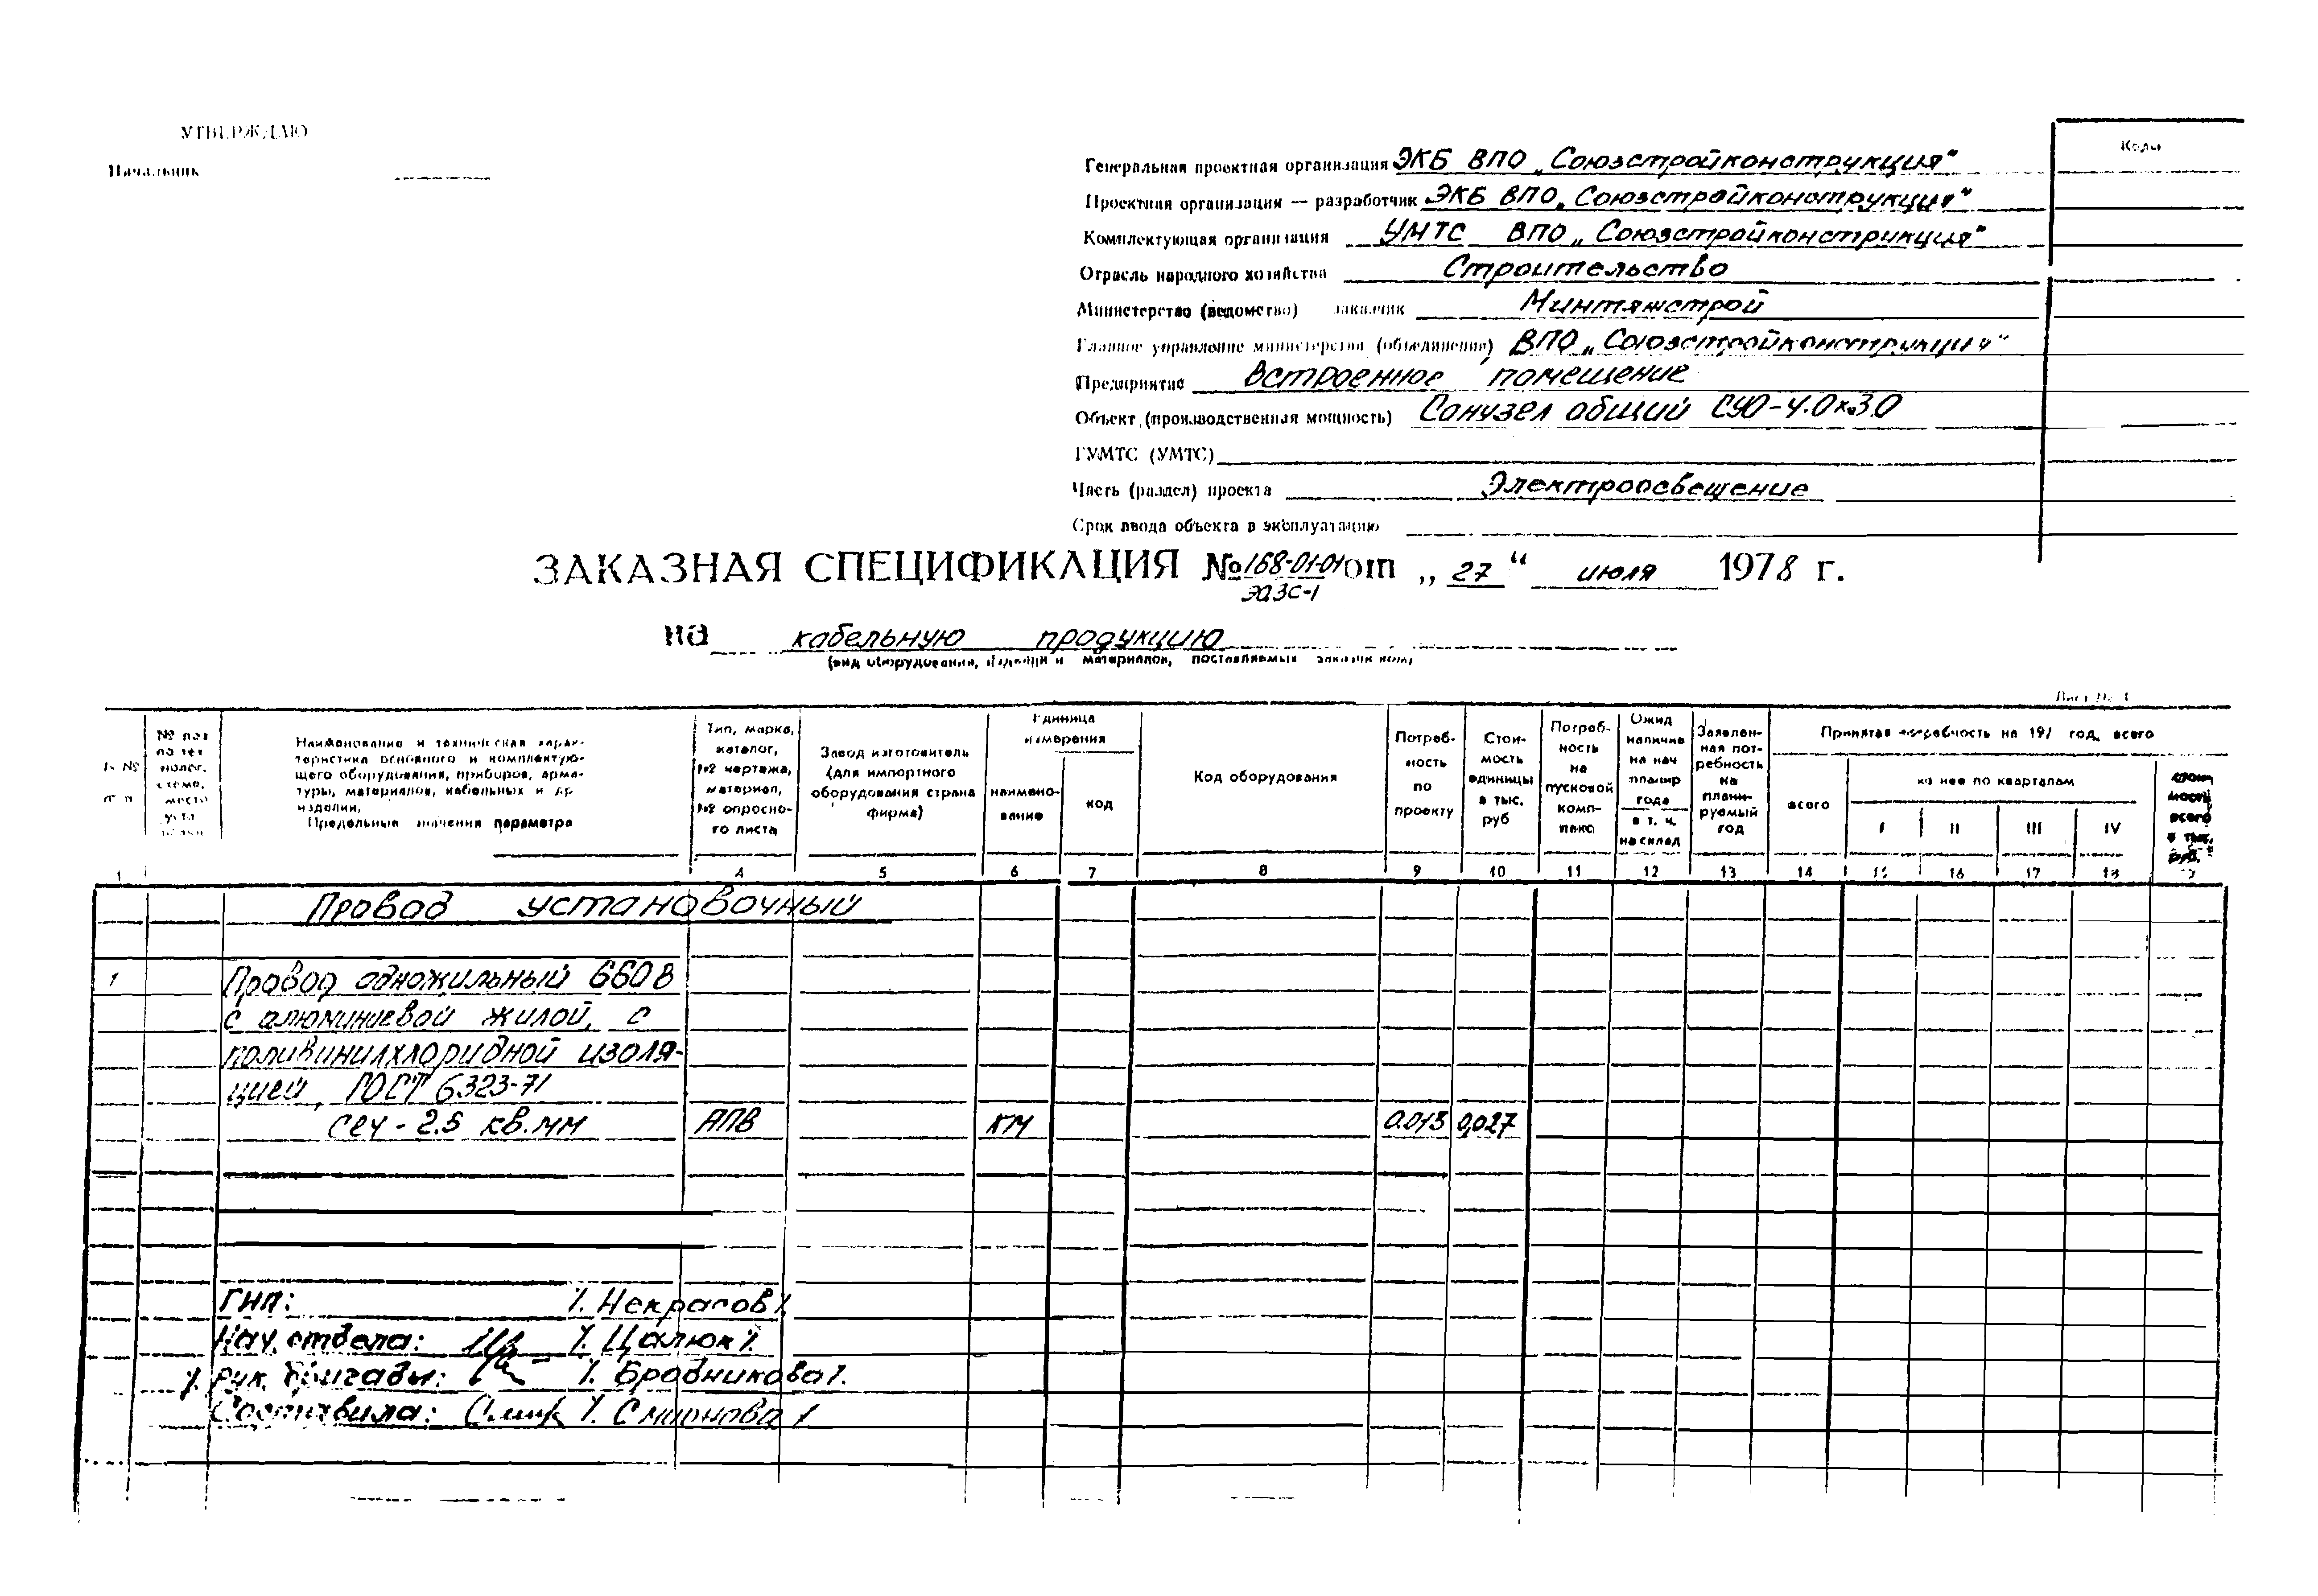 УТВЕРЖДАЮ
Начальник
Коды
Генеральная проектная организация ЭКБ ВПО „Союзстройконструкция"
Проектная организация — разработчик ЭКБ ВПО „Союзстройконструкция"
Комплектующая организация УМТС ВПО „Союзстройконструкция"
Отрасль народного хозяйства Строительство
Министерство (ведомство) заказчик Минтяжстрой
Главное управление министерства (объединение) ВПО „Союзстройконструкция"
Предприятие Встроенное помещение
Объект (производственная мощность) Санузел общий СУО-4.0х3.0
ГУМТС (УМТС)
Часть (раздел) проекта Электроосвещение
Срок ввода объекта в эксплуатацию
ЗАКАЗНАЯ СПЕЦИФИКАЦИЯ №168-01-01 от „27" июля 1978 г.
ЭАЗС-1
на кабельную продукцию
(вид оборудования, изделий и материалов, поставляемых заказчиком)
Лист № 1
№ № п п
№ поз по тех нолог. схеме, место уста новки
Наименование и техническая харак-
теристика основного и комплектую-
щего оборудования, приборов, арма-
туры, материалов, кабельных и др
изделий.
Предельные значения параметра
Тип, марка, каталог, №2 чертежа, материал, №2 опросно-го листа
Завод изготовитель (для импортного оборудования страна фирма)
Единица измерения
наимено-вание
код
Код оборудования
Потреб-ность по проекту
Стои-мость единицы в тыс. руб
Потреб-ность на пусковой комп-лекс
Ожид наличие на нач планир года в т. ч. на склад
Заявлен-ная пот-ребность на плани-руемый год
Принятая потребность на 197 год, всего
всего
из нее по кварталам
I II III IV
стои-мость всего в тыс. руб.
1 4 5 6 7 8 9 10 11 12 13 14 15 16 17 18
Провод установочный
1 Провод одножильный 660в
с алюминиевой жилой, с
поливинилхлоридной изоля-
цией, ГОСТ 6323-71
сеч - 2.5 кв.мм АПВ км 0.013 0,027
ГИП: /. Некрасов /.
Нач. отдела: /. Цалюк /.
/. Рук. бригады: /. Бровникова /.
Составила: /. Смирнова /